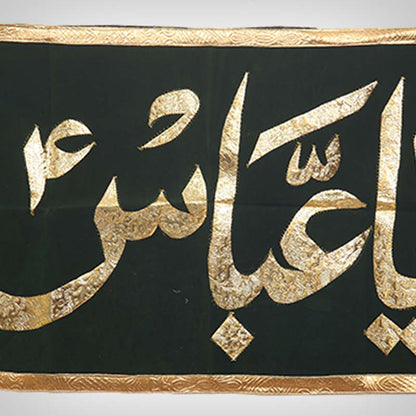 یا عبّاس ؑ